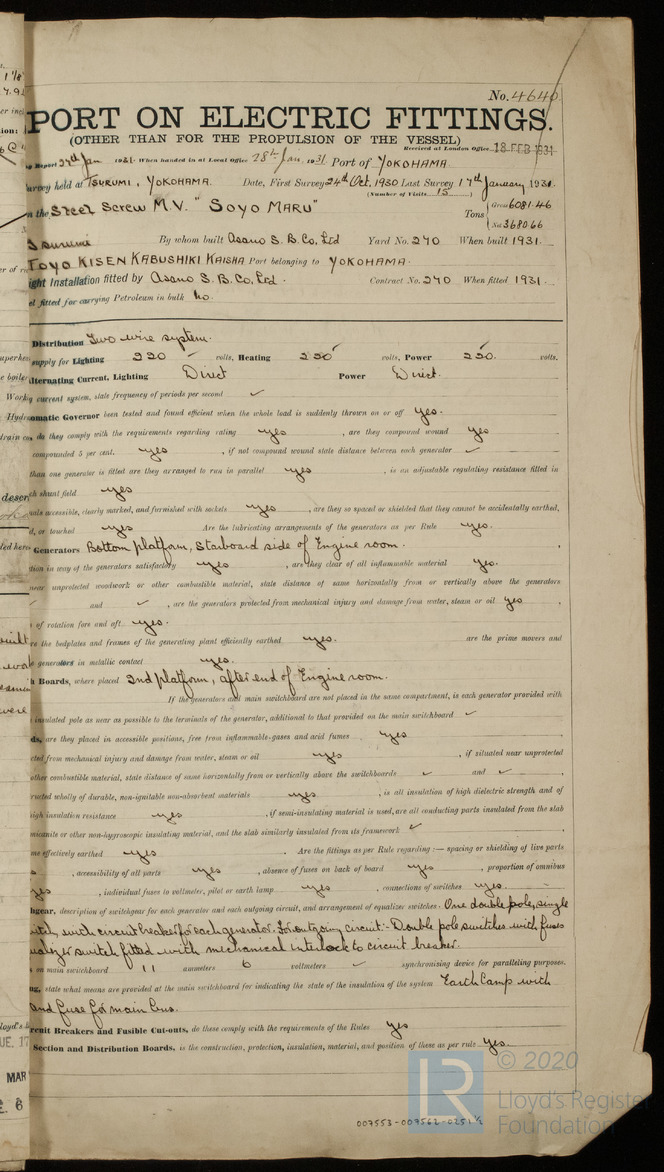 No. 4640.
PORT ON ELECTRIC FITTINGS.
(OTHER THAN FOR THE PROPULSION OF THE VESSEL)
Received at London Office 18 FEB 1931
Report 27th Jan 1931 When handed in at Local Office 28th Jan. 1931 Port of YOKOHAMA
urvey held at TSURUMI, YOKOHAMA. Date, First Survey 24th Oct, 1930 Last Survey 17th January 1931.
(Number of Visits 15)
n the Steel Screw M.V. "SOYO MARU" Tons { Gross 6081.46
Net 3680.66
Tsurumi By whom built Asano S.B. Co. Ltd Yard No. 270 When built 1931.
TOYO KISEN KABUSHIKI KAISHA Port belonging to YOKOHAMA.
ight Installation fitted by Asano S.B. Co. Ltd. Contract No. 270 When fitted 1931.
el fitted for carrying Petroleum in bulk No.
Distribution Two wire system.
supply for Lighting 220 volts, Heating 220 volts, Power 220. volts.
lternating Current, Lighting Direct Power Direct.
g current system, state frequency of periods per second ✓
omatic Governor been tested and found efficient when the whole load is suddenly thrown on or off yes.
do they comply with the requirements regarding rating yes, are they compound wound yes
compounded 5 per cent. yes, if not compound wound state distance between each generator ✓
than one generator is fitted are they arranged to run in parallel yes, is an adjustable regulating resistance fitted in
ch shunt field yes
nals accessible, clearly marked, and furnished with sockets yes, are they so spaced or shielded that they cannot be accidentally earthed,
d, or touched yes Are the lubricating arrangements of the generators as per Rule yes.
Generators Bottom platform, Starboard side of Engine room.
tion in way of the generators satisfactory yes, are they clear of all inflammable material yes.
near unprotected woodwork or other combustible material, state distance of same horizontally from or vertically above the generators
and ✓, are the generators protected from mechanical injury and damage from water, steam or oil yes,
of rotation fore and aft. yes.
re the bedplates and frames of the generating plant efficiently earthed yes. are the prime movers and
e generators in metallic contact yes.
h Boards, where placed 2nd platform, after end of Engine room.
If the generators and main switchboard are not placed in the same compartment, is each generator provided with
insulated pole as near as possible to the terminals of the generator, additional to that provided on the main switchboard ✓
ds, are they placed in accessible positions, free from inflammable gases and acid fumes yes
cted from mechanical injury and damage from water, steam or oil yes, if situated near unprotected
other combustible material, state distance of same horizontally from or vertically above the switchboards ✓ and ✓,
ructed wholly of durable, non-ignitable non-absorbent materials yes, is all insulation of high dielectric strength and of
high insulation resistance yes, if semi-insulating material is used, are all conducting parts insulated from the slab
micanite or other non-hygroscopic insulating material, and the slab similarly insulated from its framework ✓
me effectively earthed yes. Are the fittings as per Rule regarding:— spacing or shielding of live parts
s, accessibility of all parts yes, absence of fuses on back of board yes, proportion of omnibus
yes, individual fuses to voltmeter, pilot or earth lamp yes, connections of switches yes.
hgear, description of switchgear for each generator and each outgoing circuit, and arrangement of equalizer switches: One double pole, single
with circuit breaker for each generator. For outgoing circuit:- Double pole switches with fuses
switch fitted with mechanical interlock to circuit breaker.
s on main switchboard 11 ammeters 6 voltmeters ✓ synchronising device for paralleling purposes.
ng, state what means are provided at the main switchboard for indicating the state of the insulation of the system Earth Lamp with
and fuse for main bus.
rcuit Breakers and Fusible Cut-outs, do these comply with the requirements of the Rules yes
Section and Distribution Boards, is the construction, protection, insulation, material, and position of these as per rule yes.
007553-007562-0251½
LR
© 2020
Lloyd's Register
Foundation